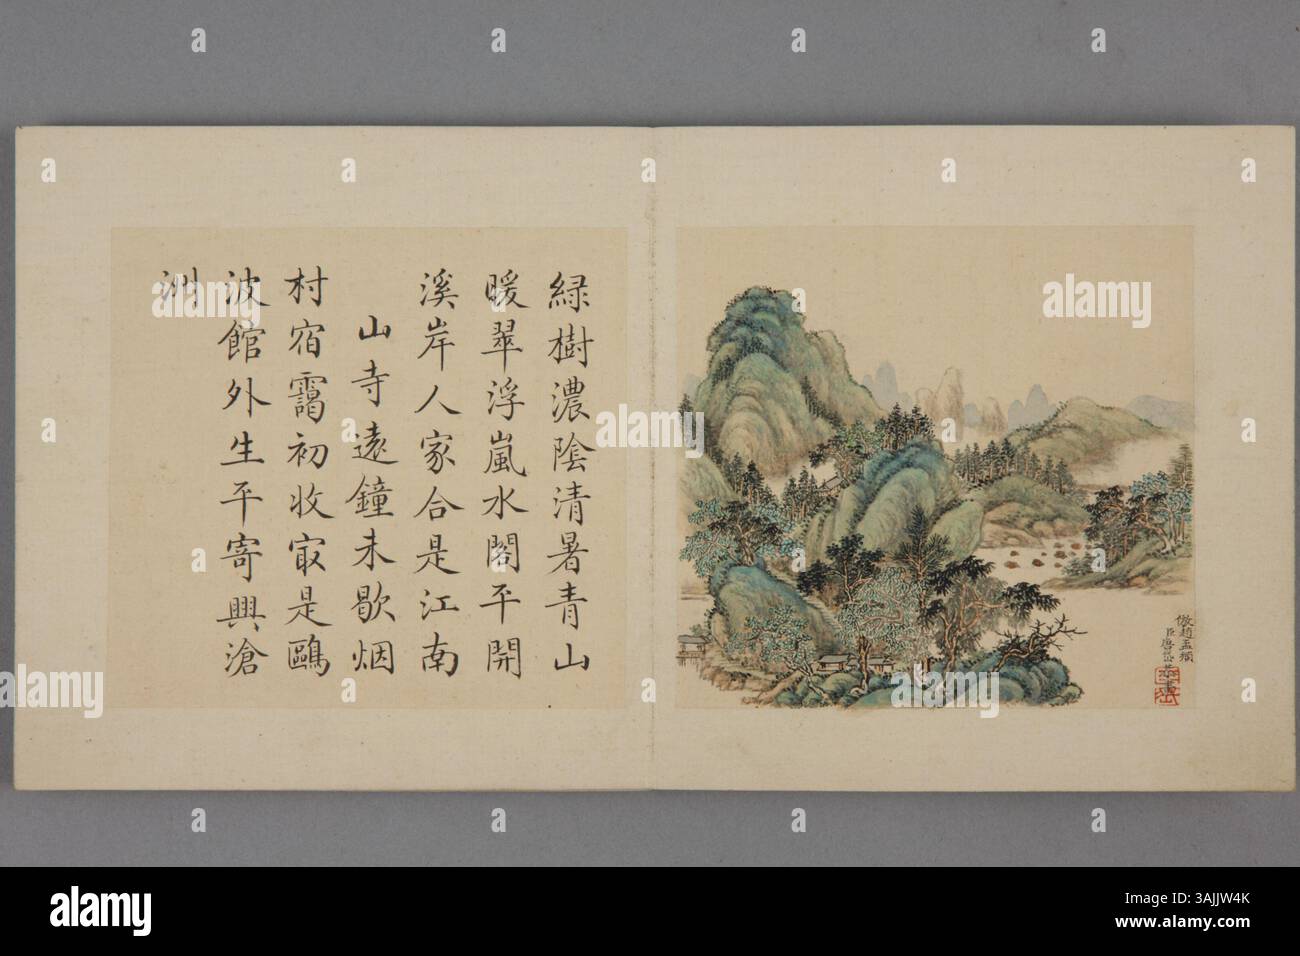 綠樹濃陰清暑青山
暖翠浮嵐水閣平開
溪岸人家合是江南
山寺遠鐘未歇烟
村宿靄初收㝡是鷗
波館外生平寄興滄
洲
倣趙孟頫
臣唐岱恭畫
alamy
Image ID: 3AJJW4K
www.alamy.com